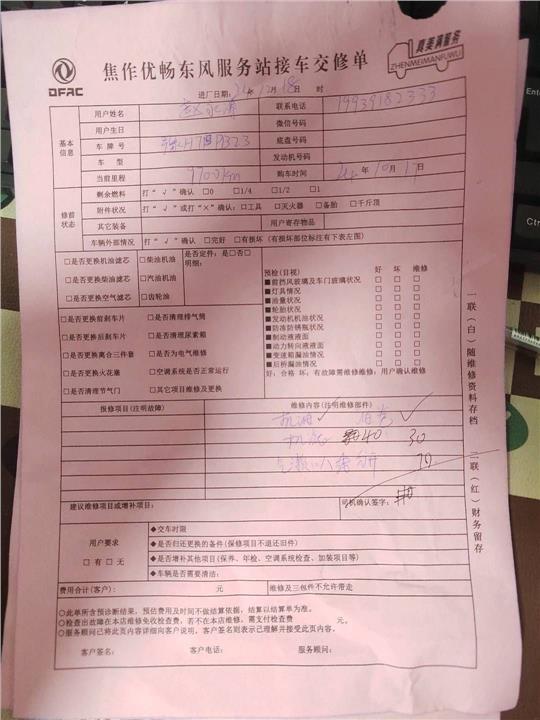 DFAC
焦作优畅东风服务站接车交修单
真美满服务
ZHENMEIMANFUWU
进厂日期: 年12月18日 时
基本信息
用户姓名
联系电话 19939182333
用户生日 微信号码
车牌号 底盘号码
车型 发动机号码
当前里程 购车时间 24年10月17日
修前状态
剩余燃料 打“√”确认 □0 □1/4 □1/2 □1
附件状况 打“√”或打“×”确认: □工具 □灭火器 □备胎 □千斤顶
其它装备 用户寄存物品
车辆外部情况 打“√”确认 □完好 □有损坏 (有损坏部位标注有下表左图)
□是否更换机油滤芯 □柴油机油
□是否更换柴油滤芯 □汽油机油
□是否更换空气滤芯 □齿轮油
是否定件: □是□否
明细:
□是否更换前刹车片 □是否清理排气筒
□是否更换后刹车片 □是否清理尿素箱
□是否更换离合三件套 □是否为电气维修
□是否更换火花塞 □空调系统是否正常运行
□是否清理节气门 □其它项目维修及更换
预检(目视) 好 坏 维修
■前挡风玻璃及车门玻璃状况 □ □ □
■灯具情况 □ □ □
■油量状况 □ □ □
■轮胎状况 □ □ □
■发动机机油状况 □ □ □
■防冻防锈瓶状况 □ □ □
■制动液液面 □ □ □
■动力转向液液面 □ □ □
■变速箱漏油情况 □ □ □
■后桥漏油情况 □ □ □
好: 合格 坏: 有故障需维修维修: 用户确认维修
报修项目(注明故障) 维修内容(注明维修部件)
机油 √ √
机滤 40 30
70
建议维修项目或增补项目: 司机确认签字:
用户要求
□有 □无
◆交车时限
◆是否归还更换的备件(保修项目不退还旧件)
◆是否增补其他项目(保养、年检、空调系统检查、加装项目等)
◆车辆是否需要清洁:
费用合计(客户): 元 维修及三包件不允许带走
○此单所含预诊断结果, 预估费用及时间不做结算依据, 结算以结算单为准。
○检查出故障在本店维修免收检查费, 若不在本店维修, 需支付检查费 元。
○服务顾问已将此页内容详细向客户说明, 客户签名则表示已理解并接受此页内容。
客户签名: 客户电话: 服务顾问:
一联(白)随维修资料存档 二联(红)财务留存
Ctrl